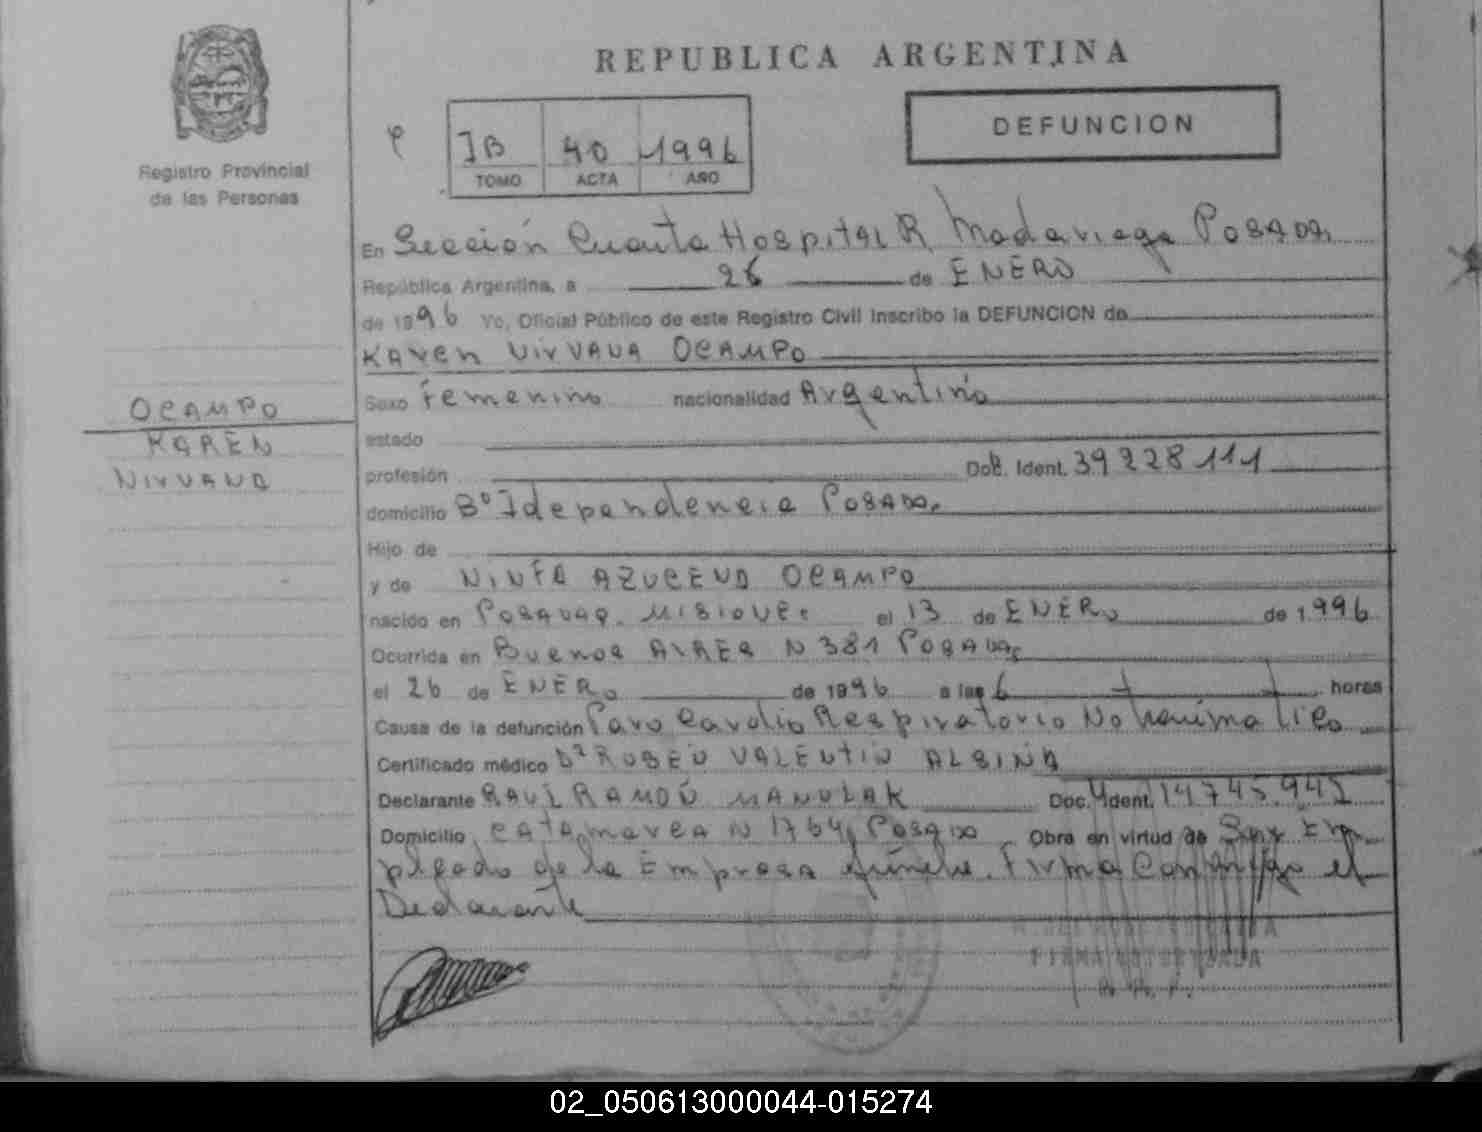 REPUBLICA ARGENTINA
Registro Provincial
de las Personas
IB 40 1996
TOMO ACTA AÑO
DEFUNCION
En Sección Cuarta Hospital R Madariaga Posadas
República Argentina, a 26 de ENERO
de 1996 Yo, Oficial Público de este Registro Civil inscribo la DEFUNCION de
KAREN NIRVANA OCAMPO
OCAMPO
KAREN
NIRVANA
Sexo Femenino nacionalidad Argentino
estado
profesión Doc. Ident. 39228111
domicilio B° Idependencia Posadas
Hijo de
y de NINFA AZUCENA OCAMPO
nacido en POSADAS. MISIONES el 13 de ENERO de 1996
Ocurrida en Buenos AIRES N 381 POSADAS
el 26 de ENERO de 1996 a las 6 horas
Causa de la defunción Paro Cardio Respiratorio No traumatico
Certificado médico Dr RUBEN VALENTIN ALBINA
Declarante RAUL RAMON MANULAK Doc. Ident. 14745.942
Domicilio CATAMARCA N 1764 Posadas Obra en virtud de Ser Em
pleado de la Empresa fúnebre. Firma Conmigo el
Declarante
02_050613000044-015274